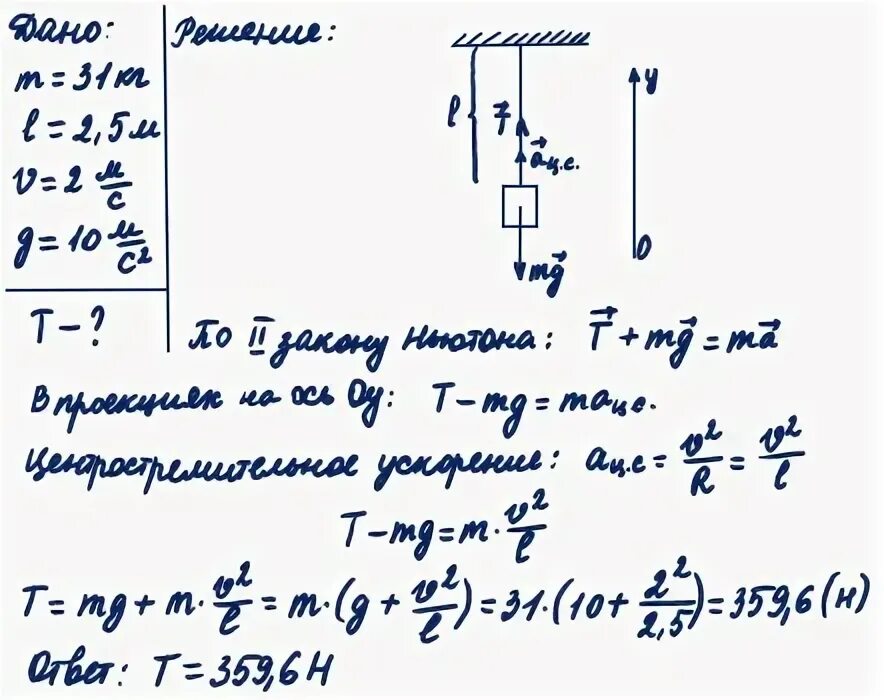 Дано:
m = 31 кг
l = 2,5 м
v = 2 м/с
g = 10 м/с²
T - ?
Решение:
l
T⃗
a⃗ц.с.
mg⃗
y
0
По II закону Ньютона: T⃗ + mg⃗ = ma⃗
В проекциях на ось Oy: T - mg = maц.с.
Центростремительное ускорение: aц.с = v²/R = v²/l
T - mg = m · v²/l
T = mg + m · v²/l = m · (g + v²/l) = 31 · (10 + 2²/2,5) = 359,6 (Н)
Ответ: T = 359,6 Н